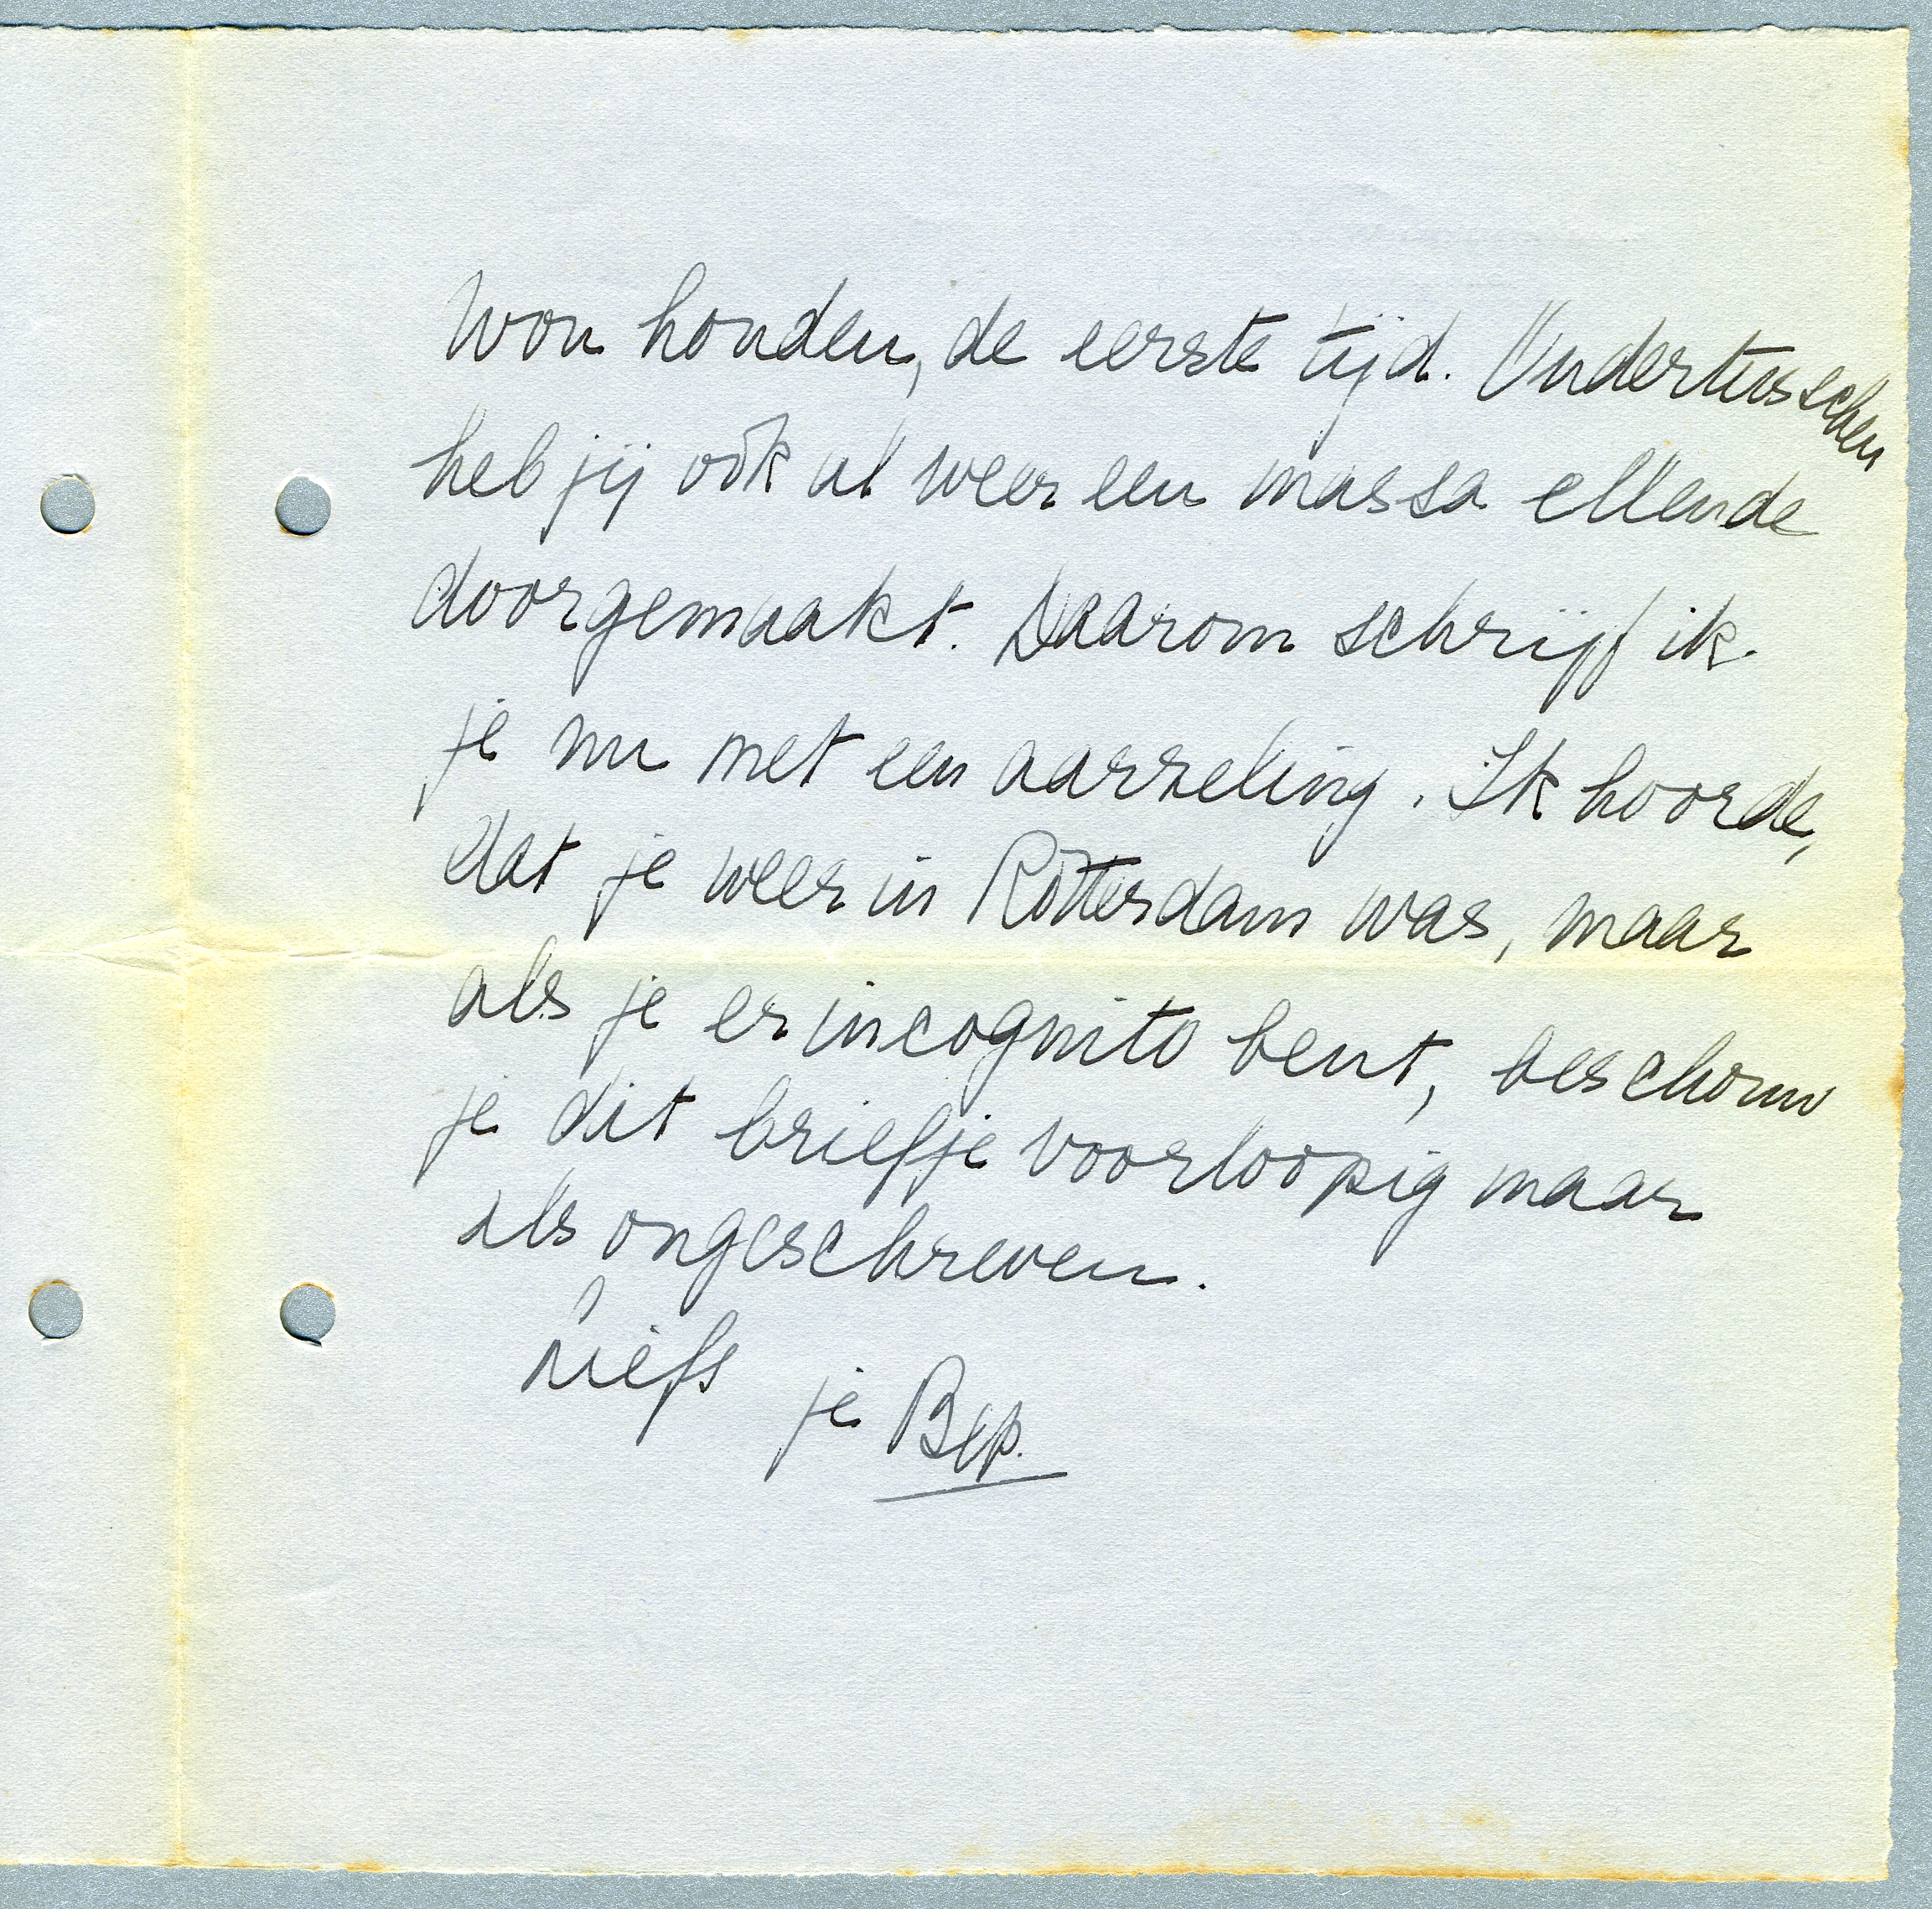 wou houden, de eerste tijd. Ondertusschen
heb jij ook al weer een massa ellende
doorgemaakt. Daarom schrijf ik
je nu met een aarzeling. Ik hoorde,
dat je weer in Rotterdam was, maar
als je er incognito bent, beschouw
je dit briefje voorloopig maar
als ongeschreven.
Liefs
je Bep.